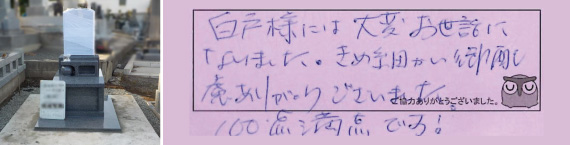 白戸様には大変お世話に
なりました。きめ細かい御配
慮ありがとうございました。
ご協力ありがとうございました。
100点満点です!